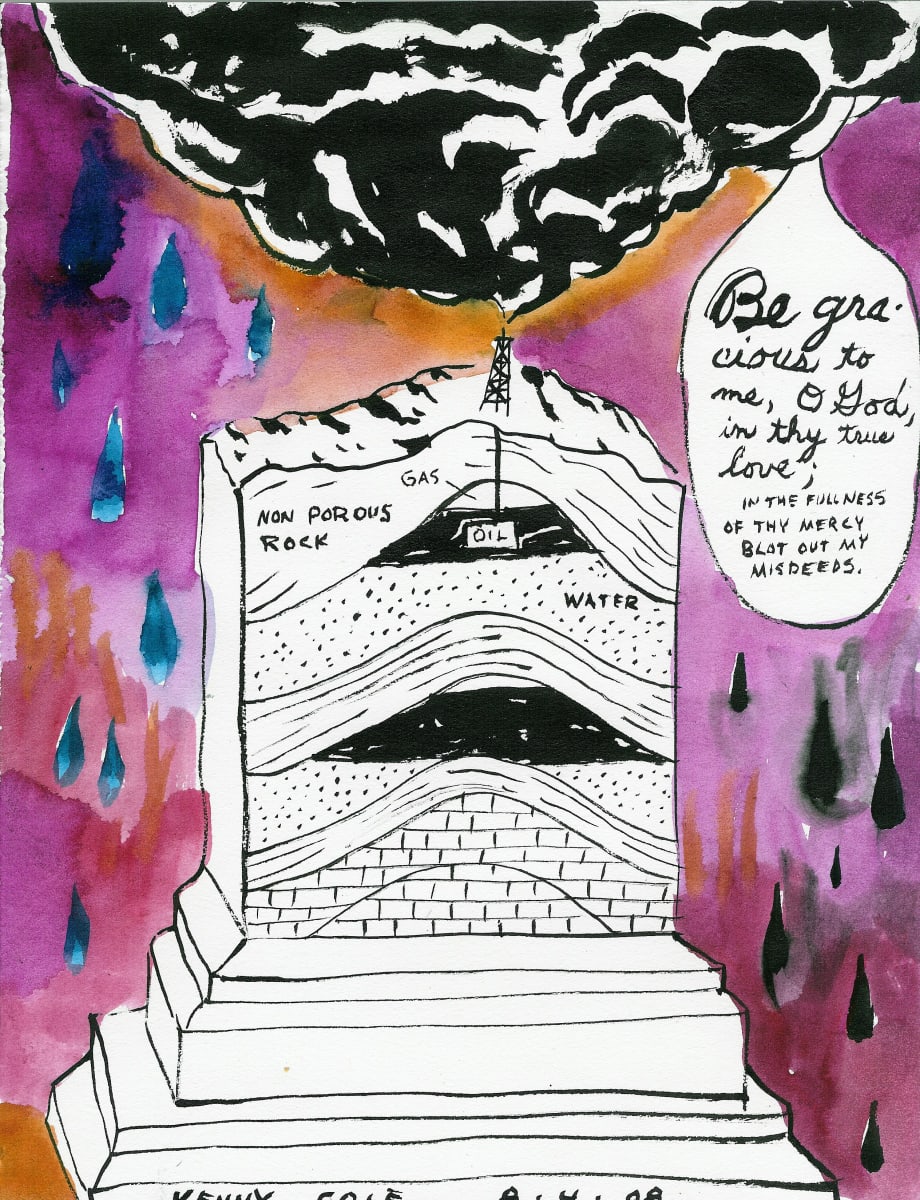 Be gra-
cious to
me, O God,
in thy true
love;
IN THE FULLNESS
OF THY MERCY
BLOT OUT MY
MISDEEDS.
GAS
NON POROUS
ROCK
OIL
WATER
KENNY COLE 8.4.08